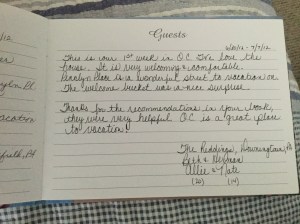 Guests
This is our 1st week in O.C. I've love the
house. It is very welcoming & comfortable.
Place is a wonderful street to vacation on
The welcome bucket was a nice surprise.
Thanks for the recommendations in your book,
they were very helpful. O.C. is a great place
to vacation!
The
Beth &
Allie & Nate
(20) (14)